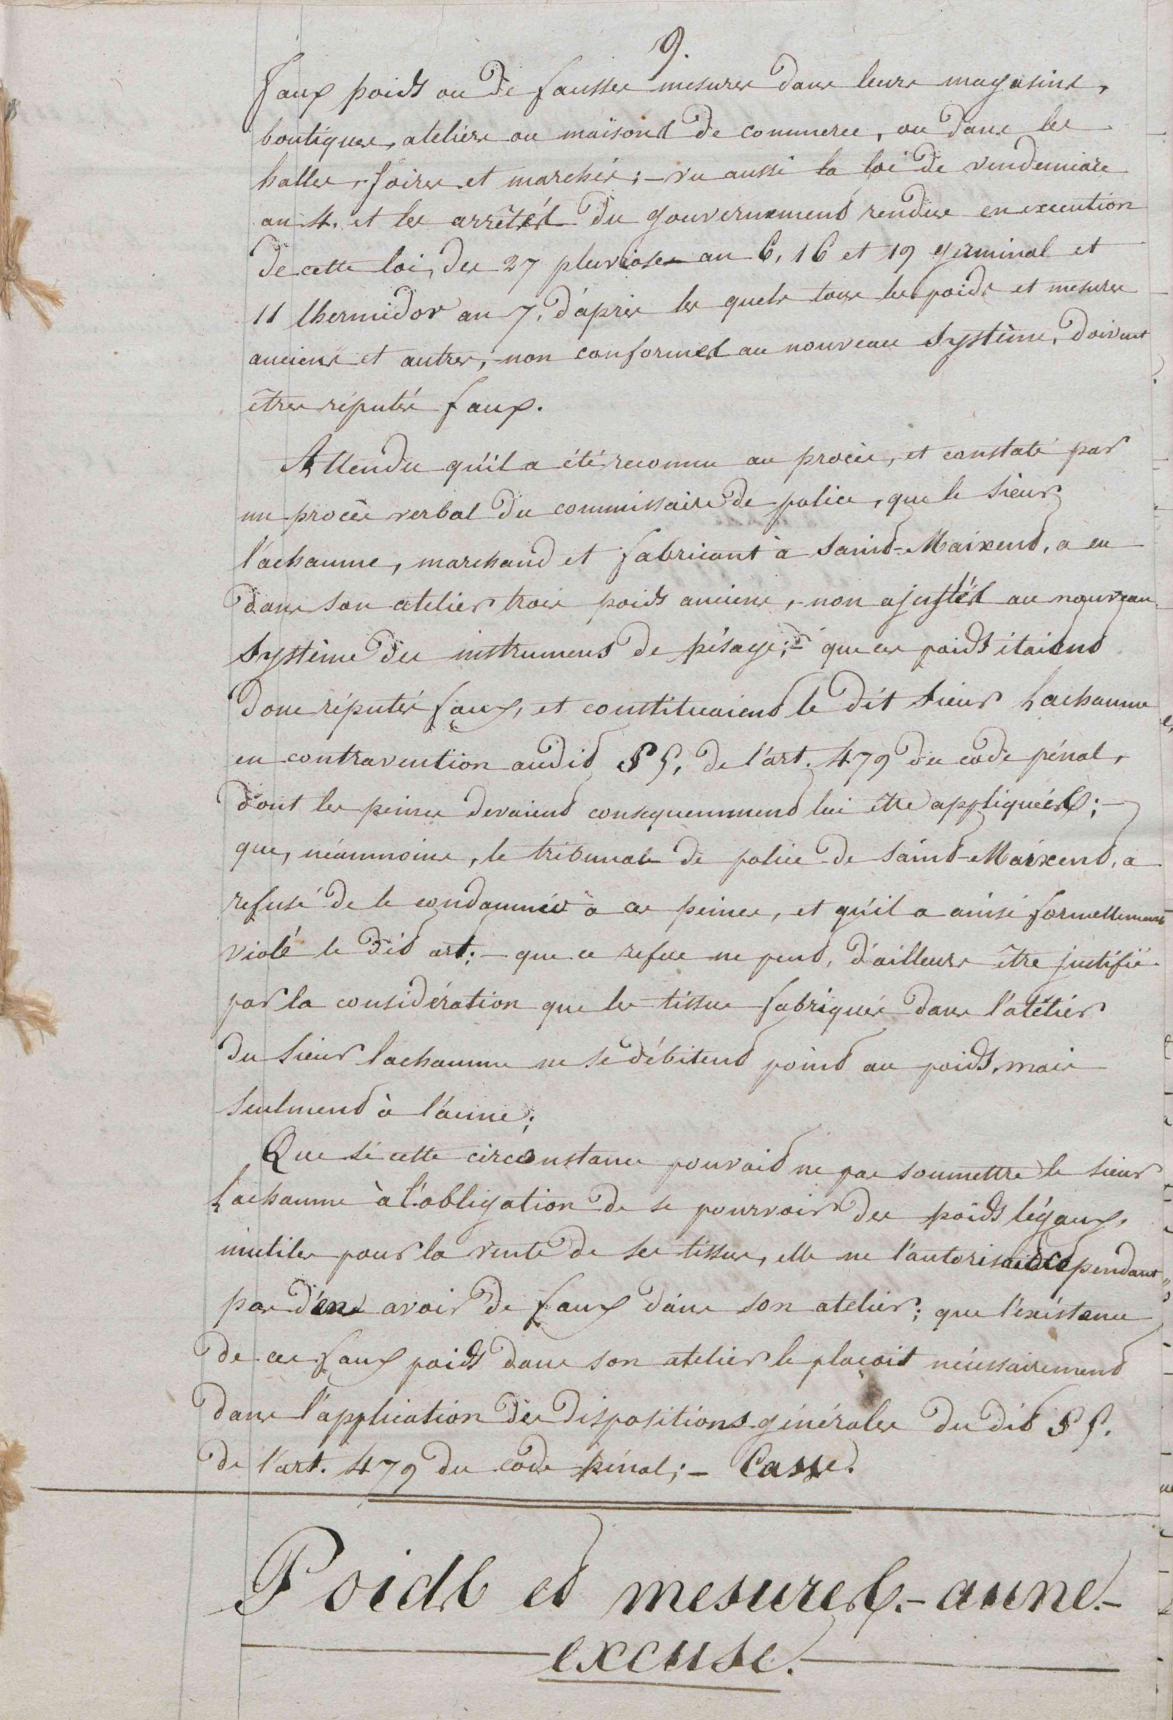 9.
faux poids ou de fausses mesures dans leurs magasins,
boutiques, ateliers ou maisons de commerce, ou dans les
halles, foires et marchés; - vu aussi la loi de vendemiaire
an 4. et les arrêtés du gouvernement rendus en execution
de cette loi, des 27 pluviose an 6, 16 et 19 germinal et
11 thermidor an 7, d'après les quels tous les poids et mesures
anciens et autres, non conformes au nouveau Système, doivent
être réputés faux.
Attendu qu'il a été reconnu au procès, et constaté par
un procès verbal du commissaire de police, que le sieur
lachaume, marchand et fabricant à Saint-Maixent, a eu
dans son atelier trois poids anciens, non ajustés au nouveau
Système des instrumens de pésage; - que ces poids étaient
donc réputés faux, et constituaient le dit Sieur Lachaume
en contravention audit § 5, de l'art. 479 du code pénal,
dont les peines devaient consequemment lui être appliquées; -
que, néanmoins, le tribunal de police de Saint-Maixent, a
refusé de le condamner à ces peines, et qu'il a ainsi formellement
violé le dit art; - que ce refus ne peut, d'ailleurs être justifié
par la considération que les tissus fabriqués dans l'atélier
du Sieur lachaume ne se débitent point au poids, mais
seulment à l'aune;
Que si cette circonstance pouvait ne pas soumettre le sieur
Lachaume à l'obligation de se pourvoir des poids légaux,
inutiles pour la vente de ses tissus, elle ne l'autorisait cependant
pas d'en avoir de faux dans son atelier; que l'existence
de ces faux poids dans son atelier le plaçait nécessairement
dans l'application des dispositions générales du dit § 5.
de l'art. 479 du code pénal; - Casse.
Poids et mesures. - aune. -
excuse.